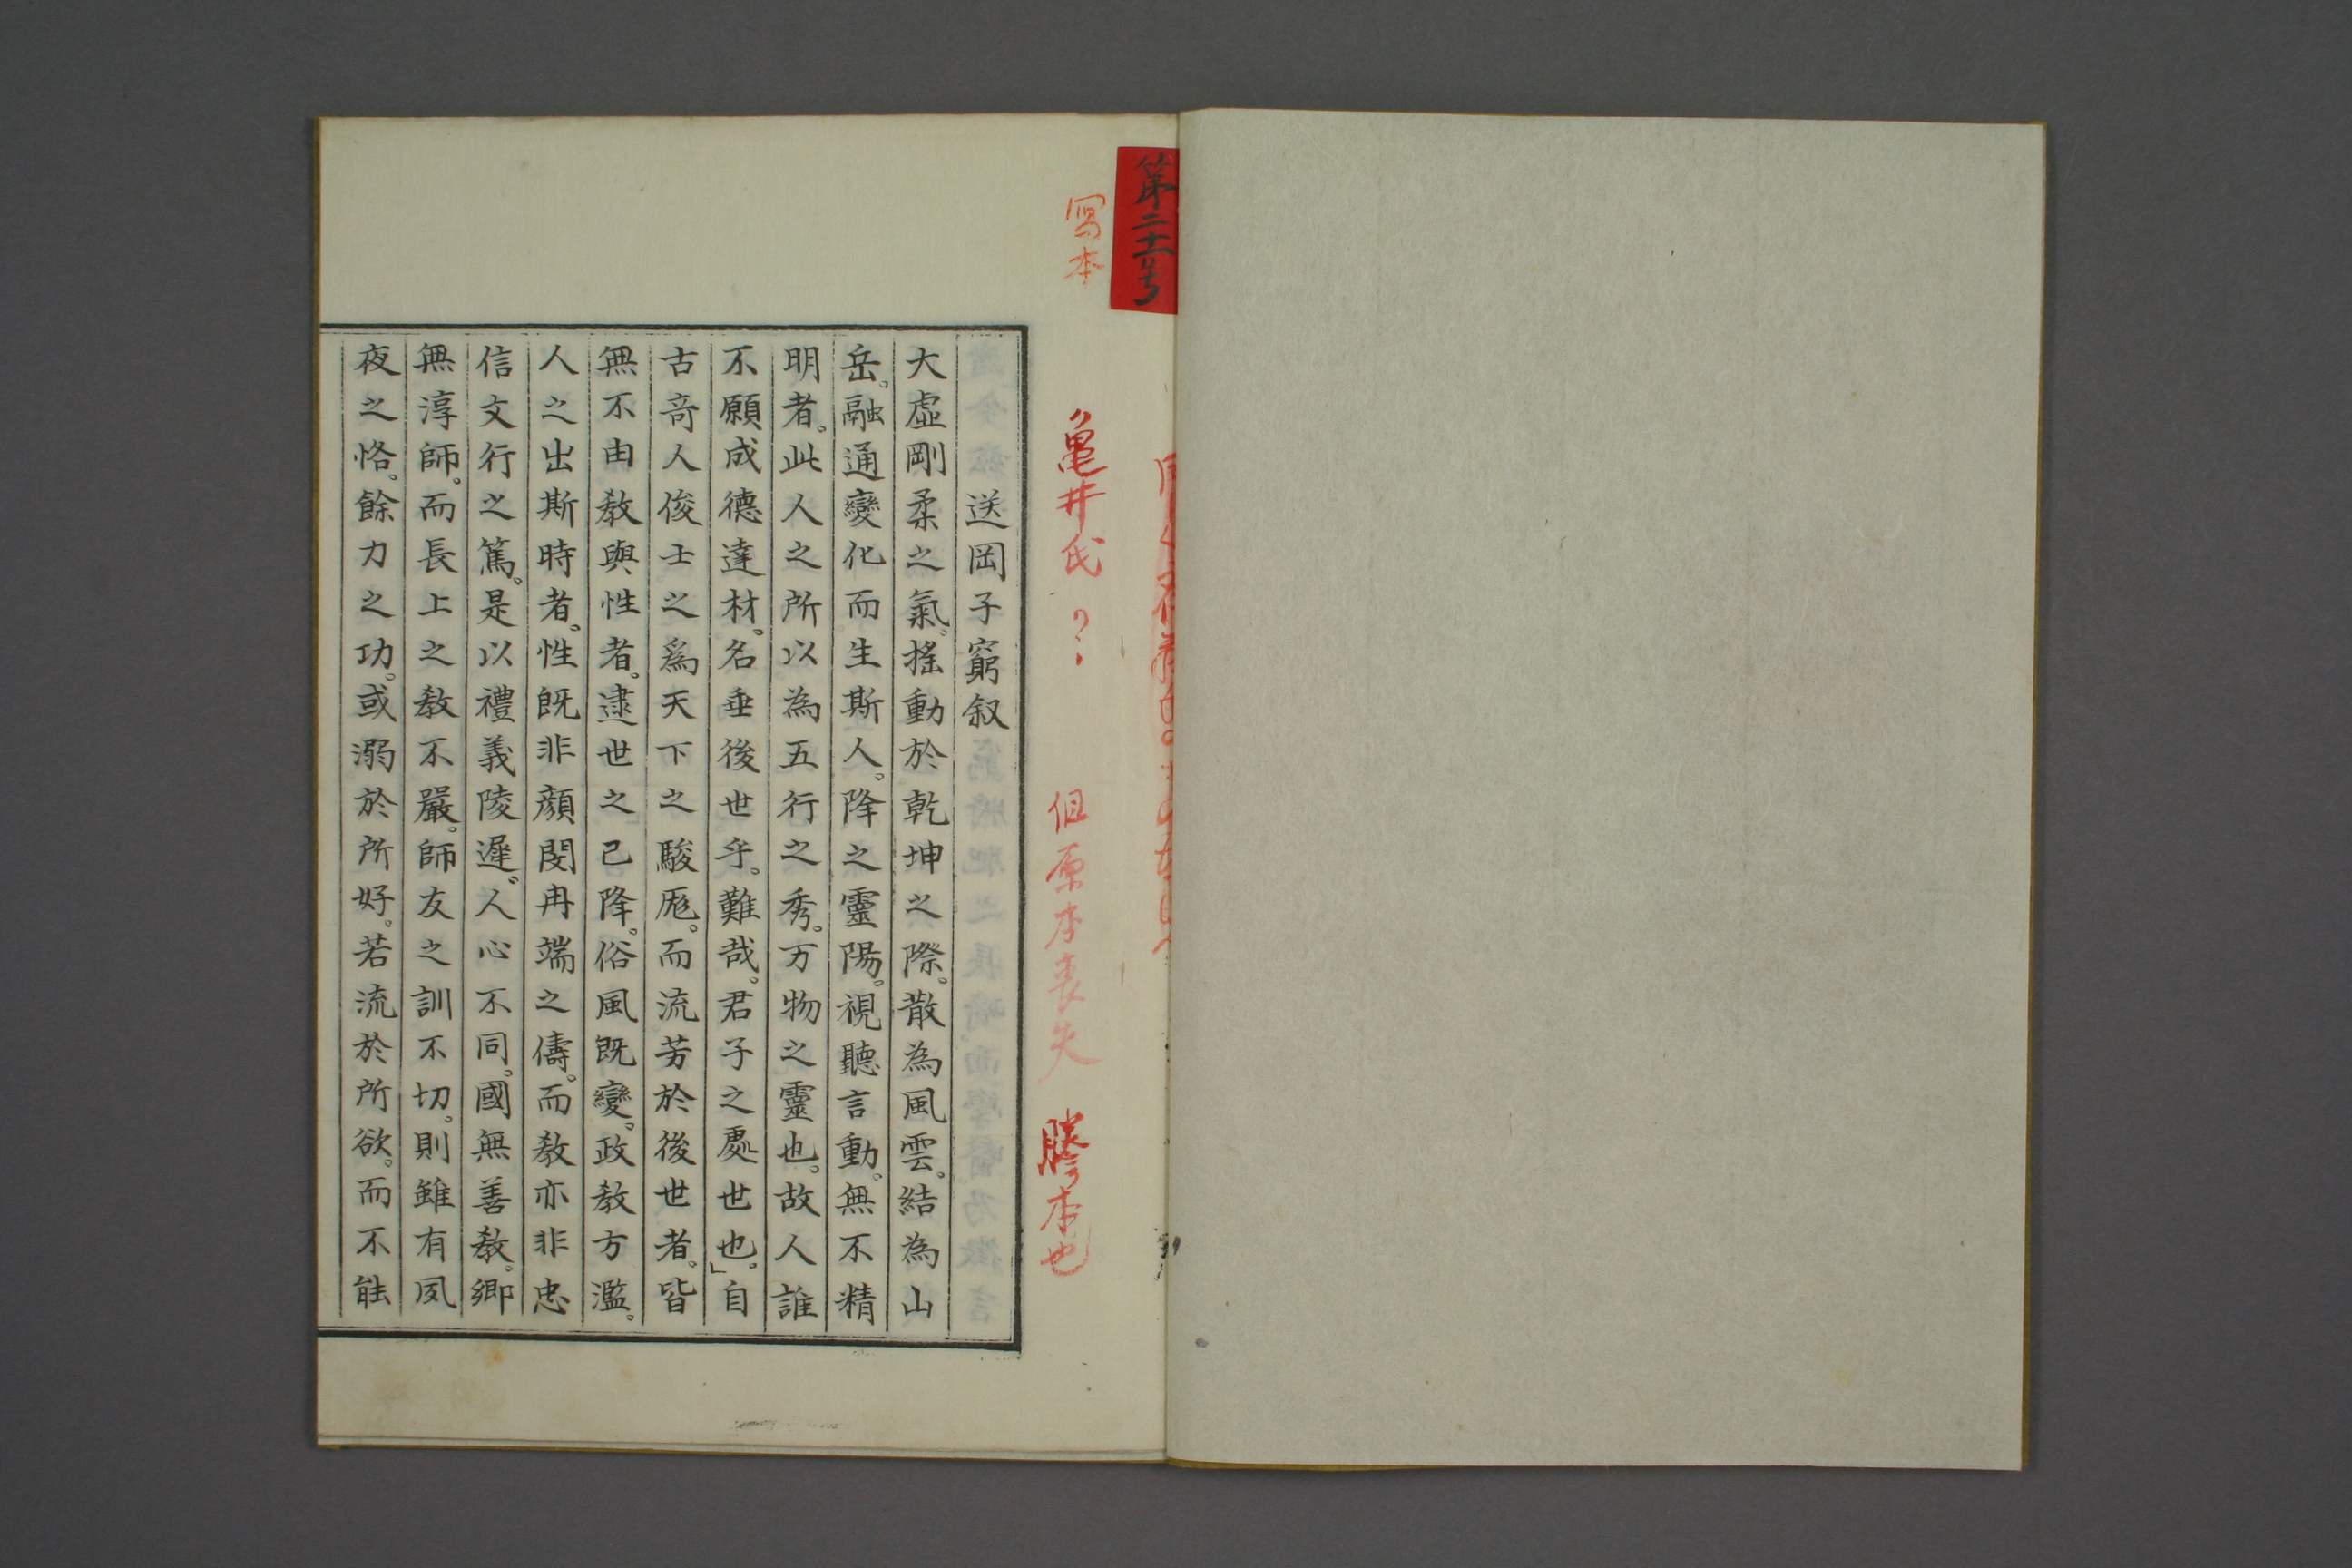 第二十一号
写本
亀井氏？ 但原本喪失 謄本也
送岡子窮叙
大虛剛柔之氣。搖動於乾坤之際。散為風雲。結為山
岳。融通變化而生斯人。降之靈陽。視聽言動。無不精
明者。此人之所以為五行之秀。万物之靈也。故人誰
不願成德達材。名垂後世乎。難哉。君子之處世也。」自
古奇人俊士之爲天下之駿厖。而流芳於後世者。皆
無不由教與性者。逮世之已降。俗風既變。政教方濫。
人之出斯時者。性既非顏閔冉端之儔。而教亦非忠
信文行之篤。是以禮義陵遲。人心不同。國無善教。鄉
無淳師。而長上之教不嚴。師友之訓不切。則雖有夙
夜之恪。餘力之功。或溺於所好。若流於所欲。而不能